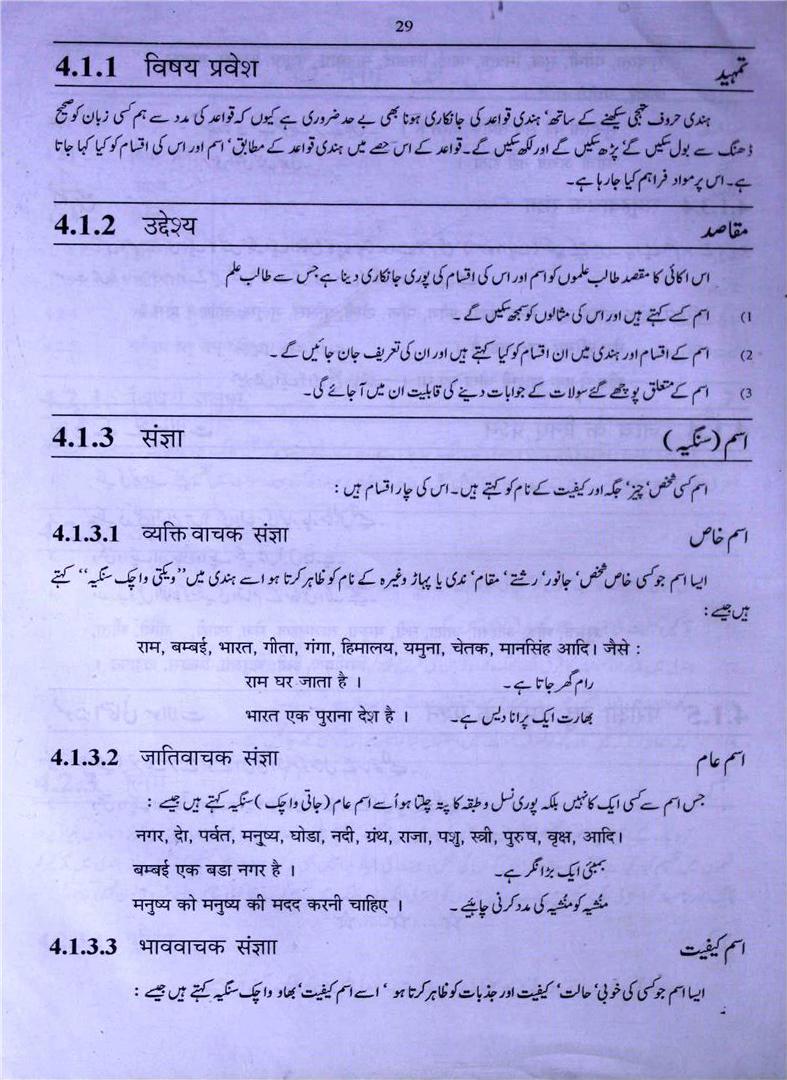 29
4.1.1 विषय प्रवेश تمہید
ہندی حروف تہجی سیکھنے کے ساتھ' ہندی قواعد کی جانکاری ہونا بھی بے حد ضروری ہے کیوں کہ قواعد کی مدد سے ہم کسی زبان کو صحیح
ڈھنگ سے بول سکیں گے' پڑھ سکیں گے اور لکھ سکیں گے۔ قواعد کے اس حصے میں ہندی قواعد کے مطابق' اسم اور اس کی اقسام کو کیا کہا جاتا
ہے۔ اس پر مواد فراہم کیا جارہا ہے۔
4.1.2 उद्देश्य مقاصد
اس اکائی کا مقصد طالب علموں کو اسم اور اس کی اقسام کی پوری جانکاری دینا ہے جس سے طالب علم
(1 اسم کسے کہتے ہیں اور اس کی مثالوں کو سمجھ سکیں گے ۔
(2 اسم کے اقسام اور ہندی میں ان اقسام کو کیا کہتے ہیں اور ان کی تعریف جان جائیں گے ۔
(3 اسم کے متعلق پوچھے گئے سولات کے جوابات دینے کی قابلیت ان میں آ جائے گی۔
4.1.3 संज्ञा اسم (سنگیہ)
اسم کسی شخص' چیز' جگہ اور کیفیت کے نام کو کہتے ہیں۔ اس کی چار اقسام ہیں :
4.1.3.1 व्यक्ति वाचक संज्ञा اسم خاص
ایسا اسم جو کسی خاص شخص' جانور' رشتے' مقام' ندی یا پہاڑ وغیرہ کے نام کو ظاہر کرتا ہو اسے ہندی میں ''ویکتی واچک سنگیہ'' کہتے
ہیں جیسے :
राम, बम्बई, भारत, गीता, गंगा, हिमालय, यमुना, चेतक, मानसिंह आदि। जैसे :
राम घर जाता है । رام گھر جاتا ہے۔
भारत एक पुराना देश है । بھارت ایک پرانا دیس ہے۔
4.1.3.2 जातिवाचक संज्ञा اسم عام
جس اسم سے کسی ایک کا نہیں بلکہ پوری نسل و طبقہ کا پتہ چلتا ہو اُسے اسم عام (جاتی واچک) سنگیہ کہتے ہیں جیسے :
नगर, देा, पर्वत, मनुष्य, घोडा, नदी, ग्रंथ, राजा, पशु, स्त्री, पुरुष, वृक्ष, आदि।
बम्बई एक बडा नगर है । بمبئی ایک بڑا نگر ہے۔
मनुष्य को मनुष्य की मदद करनी चाहिए । منُشیہ کو منُشیہ کی مدد کرنی چاہیئے ۔
4.1.3.3 भाववाचक संज्ञाा اسم کیفیت
ایسا اسم جو کسی کی خوبی' حالت' کیفیت اور جذبات کو ظاہر کرتا ہو ' اسے اسم کیفیت' بھاو واچک سنگیہ کہتے ہیں جیسے :